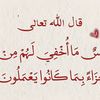 قال الله تعالى
سٌ مَّا أُخْفِيَ لَهُم مِّن
جَزَاءً بِمَا كَانُوا يَعْمَلُونَ